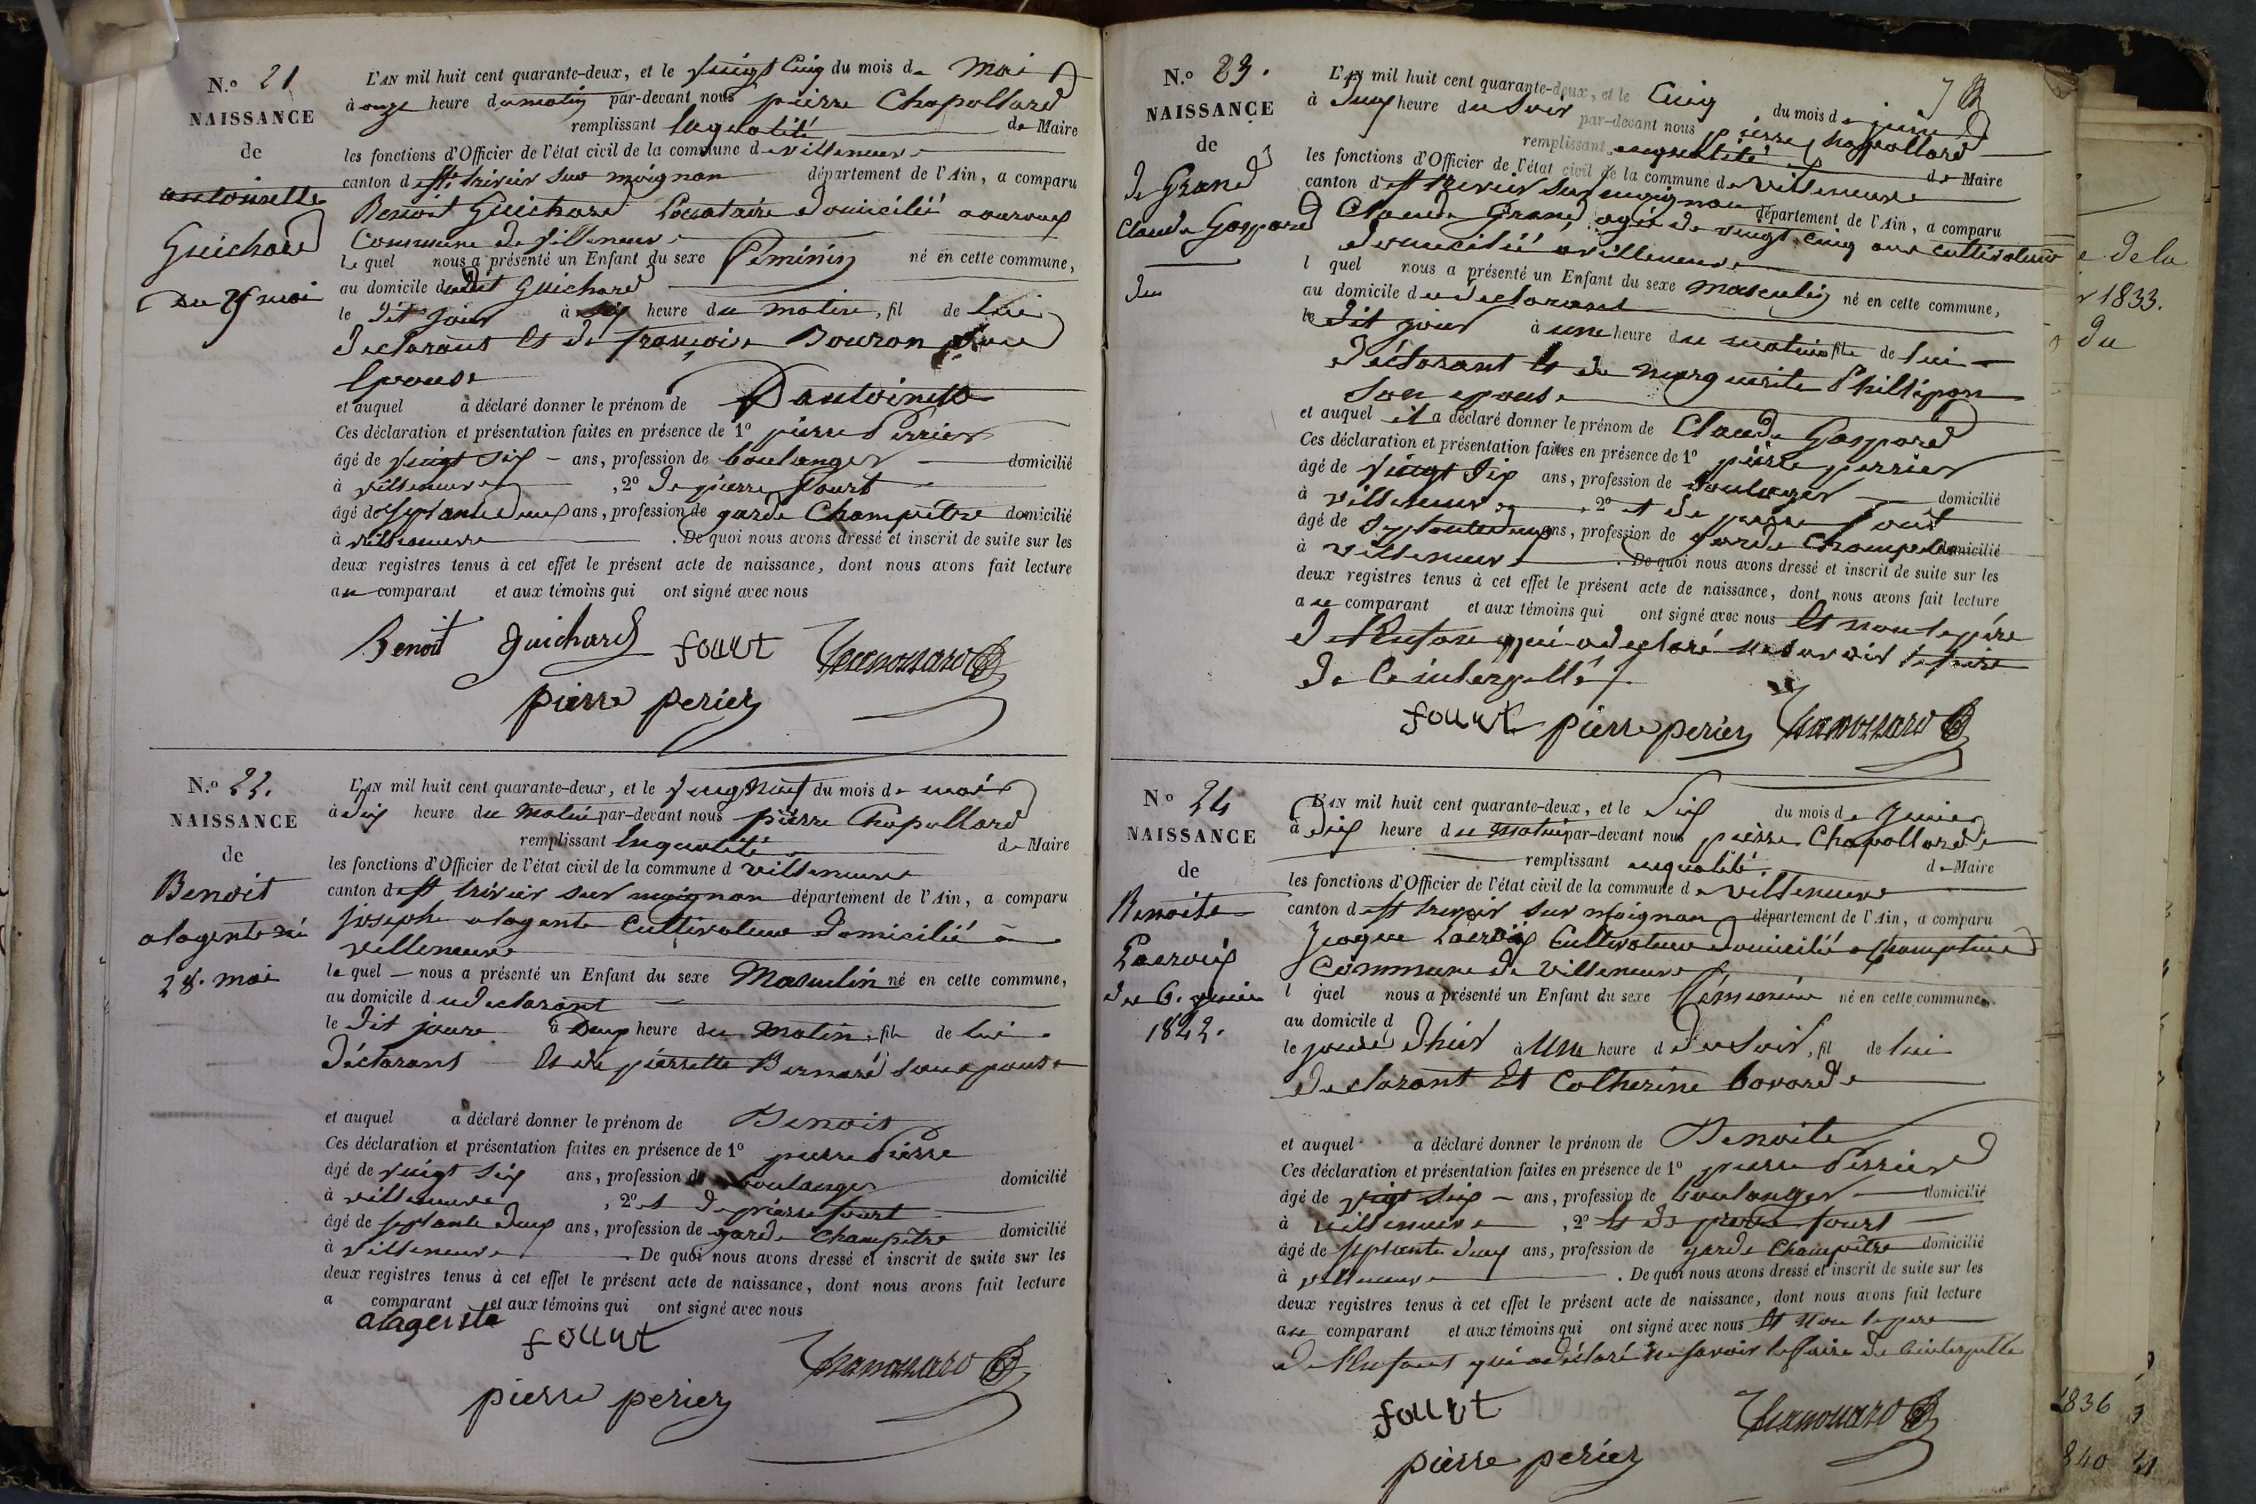 N.o 21
NAISSANCE
de
antoinette
Guichard
du 25 mai
L'AN mil huit cent quarante-deux, et le vingt cinq du mois de mai
à onze heure du matin par-devant nous pierre Chapollard
remplissant laqualité de Maire
les fonctions d'Officier de l'état civil de la commune de villeneuve
canton de st trivier sur moignan département de l'Ain, a comparu
Benoit Guichard Locataire domicilié
Commune de villeneuve
le quel nous a présenté un Enfant du sexe Féminin né en cette commune,
au domicile dudit Guichard
le dit jour à six heure du matin, fil de lui
déclarant et de françoise Bouron son
Epouse
et auquel a déclaré donner le prénom de antoinette
Ces déclaration et présentation faites en présence de 1o pierre Perrier
âgé de vingt six ans, profession de boulanger domicilié
à villeneuve, 2o de pierre fourt
âgé de septante deux ans, profession de garde Champêtre domicilié
à villeneuve. De quoi nous avons dressé et inscrit de suite sur les
deux registres tenus à cet effet le présent acte de naissance, dont nous avons fait lecture
au comparant et aux témoins qui ont signé avec nous
Benoit guichard fourt
pierre perier
N.o 22.
NAISSANCE
de
Benoit
alagente né
28. mai
L'AN mil huit cent quarante-deux, et le vingt neuf du mois de mai
à dix heure du matin par-devant nous pierre Chapollard
remplissant enqualité de Maire
les fonctions d'Officier de l'état civil de la commune d villeneuve
canton de st trivier sur moignan département de l'Ain, a comparu
joseph alagente Cultivateur domicilié à
villeneuve
le quel nous a présenté un Enfant du sexe Masculin né en cette commune,
au domicile dudeclarant
le dit jour à deux heure du matin, fils de lui
déclarant et de pierrette Bernard son epouse
et auquel a déclaré donner le prénom de Benoit
Ces déclaration et présentation faites en présence de 1o pierre Pierre
âgé de vingt six ans, profession de boulanger domicilié
à villeneuve, 2o et de pierre fourt
âgé de septante deux ans, profession de garde champêtre domicilié
à villeneuve. De quoi nous avons dressé et inscrit de suite sur les
deux registres tenus à cet effet le présent acte de naissance, dont nous avons fait lecture
a comparant et aux témoins qui ont signé avec nous
fourt
pierre perier
N.o 23.
NAISSANCE
de
de Grand
Claude Gaspard
du
L'AN mil huit cent quarante-deux, et le Cinq du mois de juin
à deux heure du soir par-devant nous pierre chapollard
remplissant enqualité de Maire
les fonctions d'Officier de l'état civil de la commune de villeneuve
canton de st trivier sur moignan département de l'Ain, a comparu
Claude Grand agé de vingt cinq ans cultivateur
domicilié a villeneuve
l quel nous a présenté un Enfant du sexe masculin né en cette commune,
au domicile du declarant
le dit jour à une heure du matin fils de lui
déclarant et de marguerite Phillipon
son epouse
et auquel il a déclaré donner le prénom de Claude Gaspard
Ces déclaration et présentation faites en présence de 1o pierre perrier
âgé de vingt six ans, profession de boulanger domicilié
à villeneuve, 2o et de pierre fourt
âgé de septante deux ans, profession de garde champetre domicilié
à villeneuve. De quoi nous avons dressé et inscrit de suite sur les
deux registres tenus à cet effet le présent acte de naissance, dont nous avons fait lecture
au comparant et aux témoins qui ont signé avec nous et non le pére
de l'enfant qui a déclaré ne savoir le faire
de ce interpellé
fourt pierre perier
No 24
NAISSANCE
de
Benoite
Lacroix
du 6. juin
1842.
L'AN mil huit cent quarante-deux, et le Six du mois de juin
à dix heure du matin par-devant nous pierre Chapollard
remplissant enqualité de Maire
les fonctions d'Officier de l'état civil de la commune de villeneuve
canton de st trivier sur moignan département de l'Ain, a comparu
Jacque Lacroix Cultivateur domicilié a
Commune de villeneuve
l quel nous a présenté un Enfant du sexe Féminin né en cette commune,
au domicile d
le jour d'hier à une heure d du soir, fil de lui
declarant et Catherine bavard
et auquel a déclaré donner le prénom de Benoite
Ces déclaration et présentation faites en présence de 1o pierre Perrier
âgé de vigt six ans, profession de boulanger domicilié
à villeneuve, 2o et de pierre fourt
âgé de septante deux ans, profession de garde Champêtre domicilié
à villeneuve. De quoi nous avons dressé et inscrit de suite sur les
deux registres tenus à cet effet le présent acte de naissance, dont nous avons fait lecture
au comparant et aux témoins qui ont signé avec nous et non le pere
de l'enfant qui a déclaré ne savoir le faire de ce interpellé
fourt
pierre perier
de la
1833.
du
1836
840